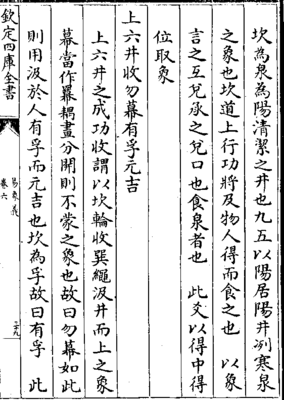 坎為泉為陽清潔之井也九五以陽居陽井冽寒泉
之象也坎道上行功將及物人得而食之也　以象
言之互兌承之兌口也食泉者也　此爻以得中得
位取象
上六井收勿幕有孚元吉
上六井之成功收謂以坎輪收巽繩汲井而上之象
幕當作羃耦畫分開則不蒙之象也故曰勿幕如此
則用汲於人有孚而元吉也坎為孚故曰有孚　此
欽定四庫全書
易象義
卷六